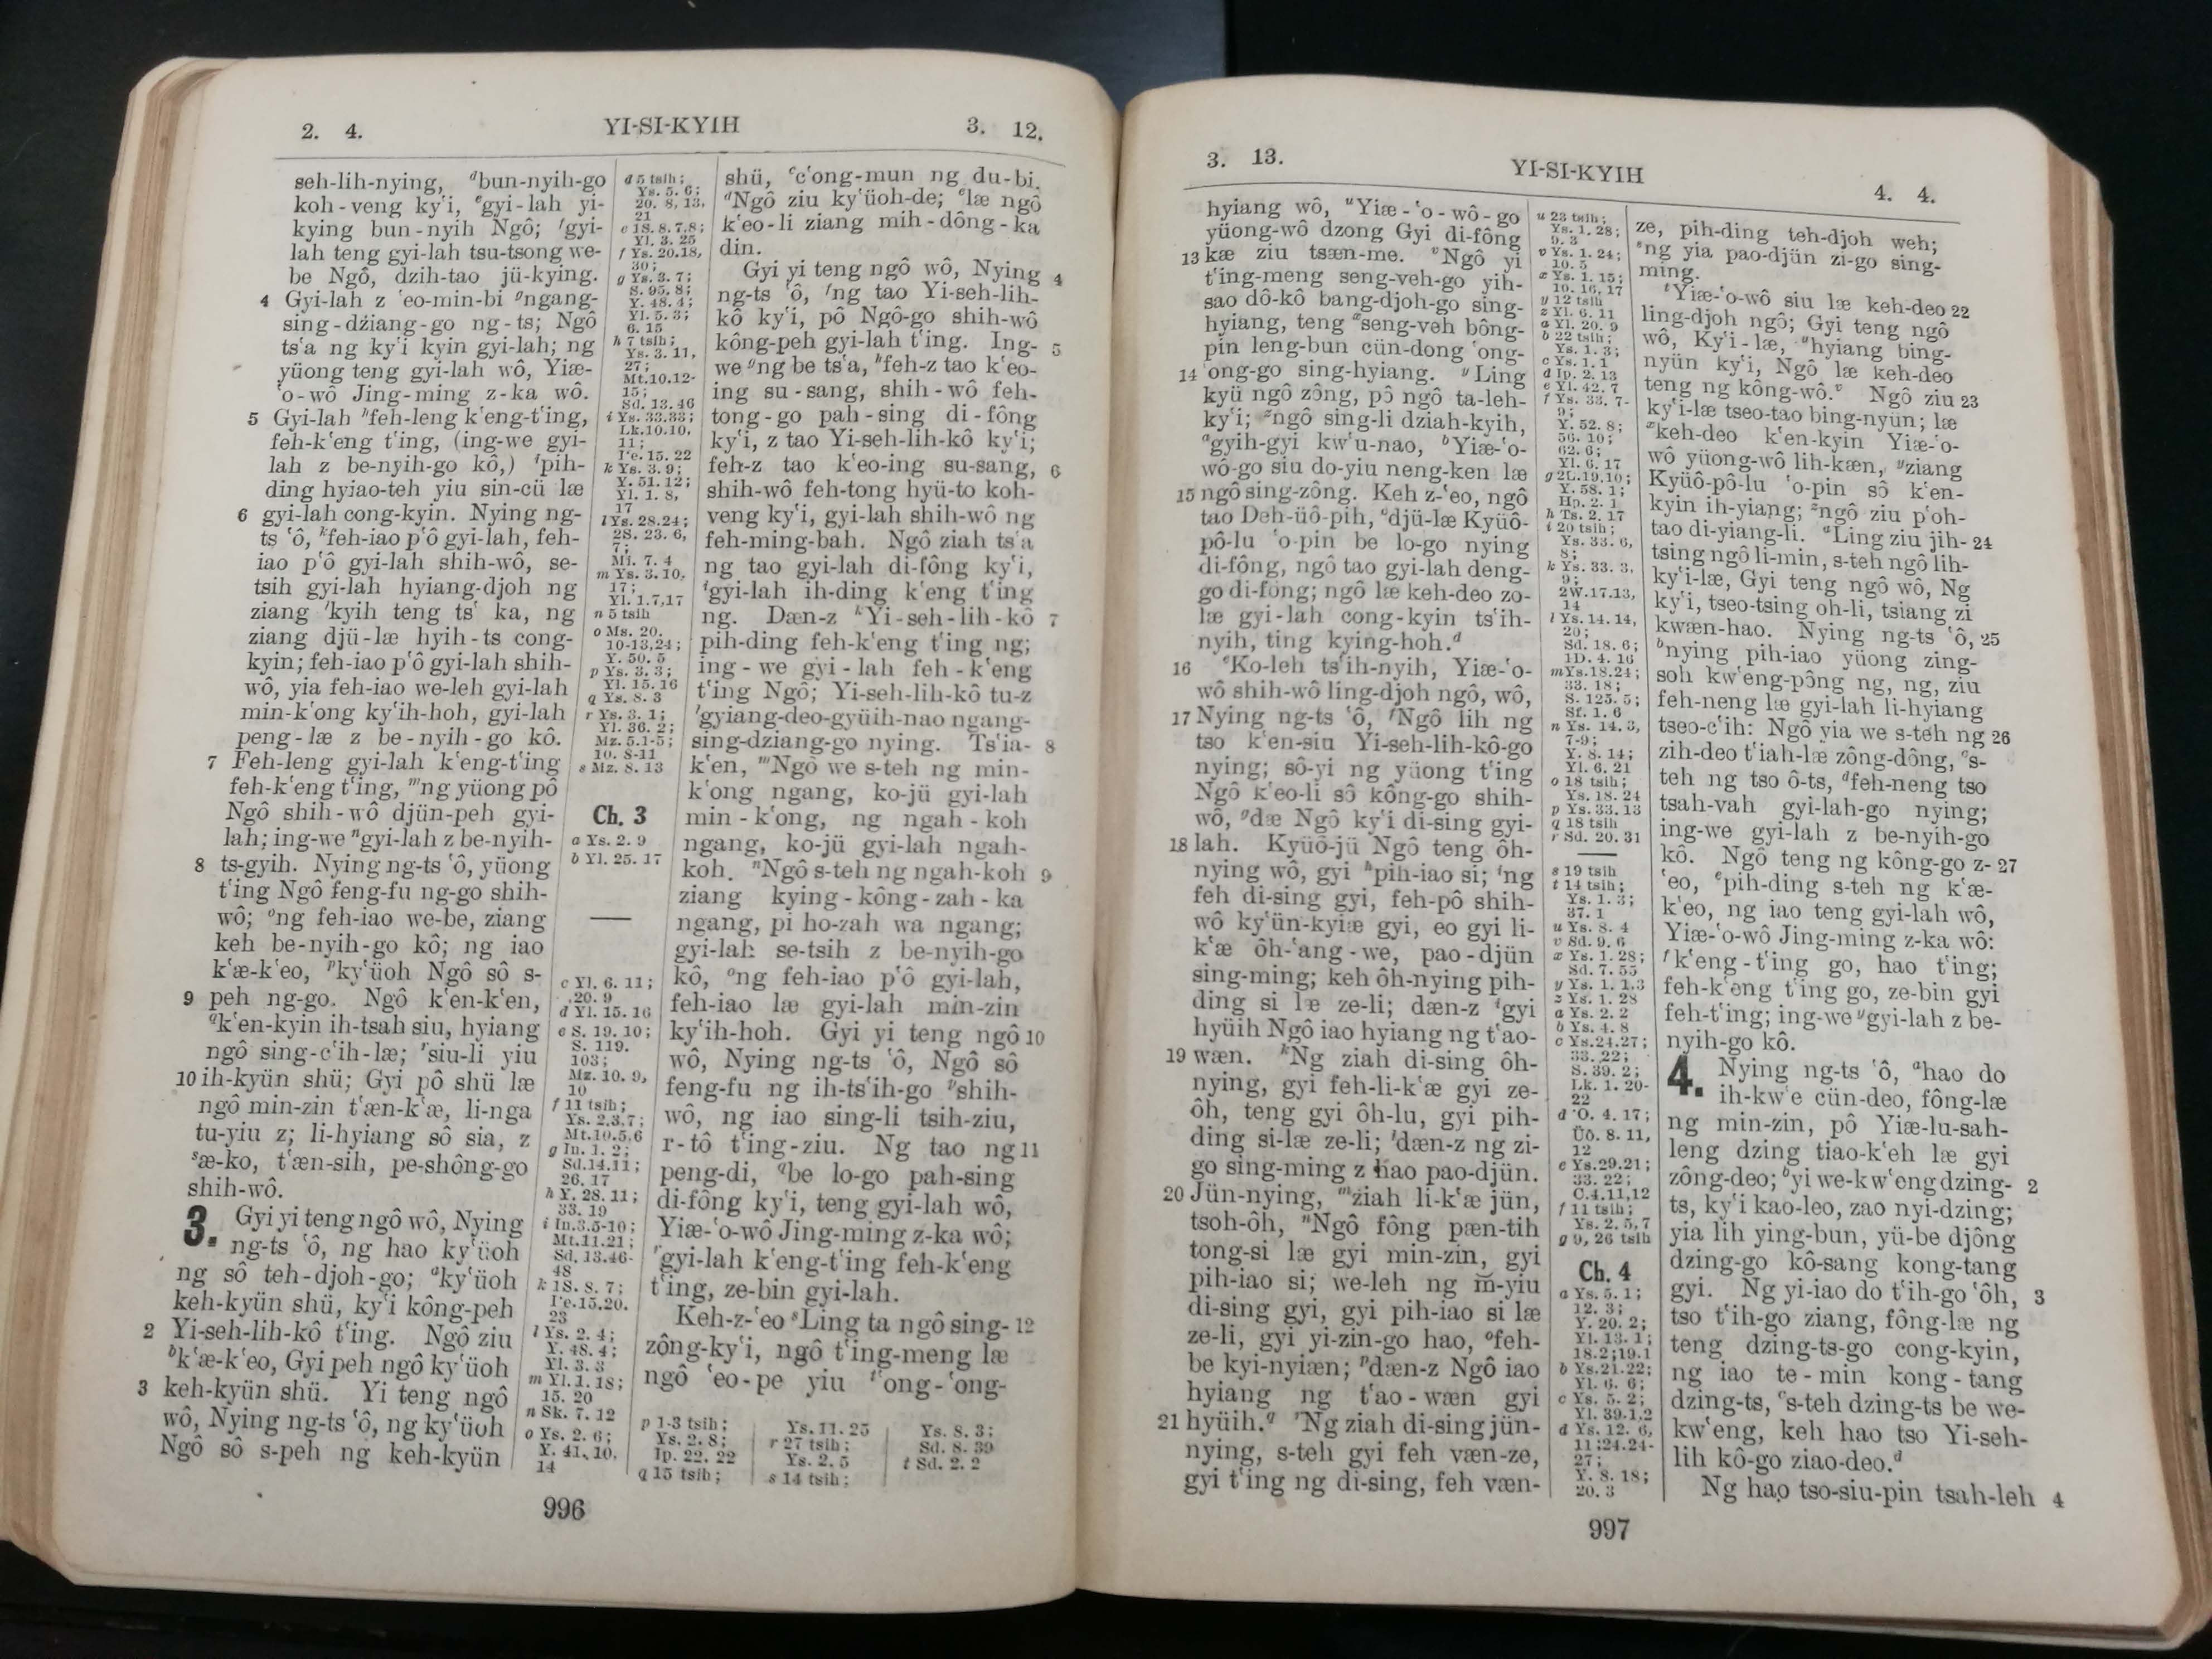 2. 4.
YI-SI-KYIH
3. 12.
seh-lih-nying, ᵈbun-nyih-go
koh-veng ky‘i, ᵉgyi-lah yi-
kying bun-nyih Ngô; ᶠgyi-
lah teng gyi-lah tsu-tsong we-
be Ngô, dzih-tao jü-kying.
4 Gyi-lah z ‘eo-min-bi ᵍngang-
sing-dziang-go ng-ts; Ngô
ts‘a ng ky‘i kyin gyi-lah; ng
yüong teng gyi-lah wô, Yiæ-
‘o-wô Jing-ming z-ka wô.
5 Gyi-lah ʰfeh-leng k‘eng-t‘ing,
feh-k‘eng t‘ing, (ing-we gyi-
lah z be-nyih-go kô,) ⁱpih-
ding hyiao-teh yiu sin-cü læ
6 gyi-lah cong-kyin. Nying ng-
ts ‘ô, ᵏfeh-iao p‘ô gyi-lah, feh-
iao p‘ô gyi-lah shih-wô, se-
tsih gyi-lah hyiang-djoh ng
ziang ˡkyih teng ts‘ ka, ng
ziang djü-læ hyih-ts cong-
kyin; feh-iao p‘ô gyi-lah shih-
wô, yia feh-iao we-leh gyi-lah
min-k‘ong ky‘ih-hoh, gyi-lah
peng-læ z be-nyih-go kô.
7 Feh-leng gyi-lah k‘eng-t‘ing
feh-k‘eng t‘ing, ᵐng yüong pô
Ngô shih-wô djün-peh gyi-
lah; ing-we ⁿgyi-lah z be-nyih-
8 ts-gyih. Nying ng-ts ‘ô, yüong
t‘ing Ngô feng-fu ng-go shih-
wô; ᵒng feh-iao we-be, ziang
keh be-nyih-go kô; ng iao
k‘æ-k‘eo, ᵖky‘üoh Ngô sô s-
9 peh ng-go. Ngô k‘en-k‘en,
qk‘en-kyin ih-tsah siu, hyiang
ngô sing-c‘ih-læ; ʳsiu-li yiu
10 ih-kyün shü; Gyi pô shü læ
ngô min-zin t‘æn-k‘æ, li-nga
tu-yiu z; li-hyiang sô sia, z
ˢæ-ko, t‘æn-sih, pe-shông-go
shih-wô.
3. Gyi yi teng ngô wô, Nying
ng-ts ‘ô, ng hao ky‘üoh
ng sô teh-djoh-go; ᵃky‘üoh
keh-kyün shü, ky‘i kông-peh
2 Yi-seh-lih-kô t‘ing. Ngô ziu
ᵇk‘æ-k‘eo, Gyi peh ngô ky‘üoh
3 keh-kyün shü. Yi teng ngô
wô, Nying ng-ts ‘ô, ng ky‘üoh
Ngô sô s-peh ng keh-kyün
d 5 tsih;
Ys. 5. 6;
20. 8, 13,
21
e 1S. 8. 7,8;
Yl. 3. 25
f Ys. 20.18,
30;
g Ys. 3. 7;
S. 95. 8;
Y. 48. 4;
Yl. 5. 3;
6. 15
h 7 tsih;
Ys. 3. 11,
27;
Mt.10.12-
15;
Sd. 13.46
i Ys. 33.33;
Lk.10.10,
11;
Pe. 15. 22
k Ys. 3. 9;
Y. 51. 12;
Yl. 1. 8,
17
l Ys. 28.24;
2S. 23. 6,
7;
Mi. 7. 4
m Ys. 3. 10,
17;
Yl. 1.7,17
n 5 tsih
o Ms. 20.
10-13,24;
Y. 50. 5
p Ys. 3. 3;
Yl. 15. 16
q Ys. 8. 3
r Ys. 3. 1;
Yl. 36. 2;
Mz. 5.1-5;
10. 8-11
s Mz. 8. 13
Ch. 3
a Ys. 2. 9
b Yl. 25. 17
c Yl. 6. 11;
20. 9
d Yl. 15. 16
e S. 19. 10;
S. 119.
103;
Mz. 10. 9,
10
f 11 tsih;
Ys. 2.3,7;
Mt.10.5,6
g In. 1. 2;
Sd.14.11;
26. 17
h Y. 28. 11;
33. 19
i In.3.5-10;
Mt.11.21;
Sd. 13.46-
48
k 1S. 8. 7;
Pe.15.20.
23
l Ys. 2. 4;
Y. 48. 4;
Yl. 3. 3
m Yl. 1. 18;
15. 20
n Sk. 7. 12
o Ys. 2. 6;
Y. 41. 10,
14
shü, ᶜc‘ong-mun ng du-bi.
ᵈNgô ziu ky‘üoh-de; ᵉlæ ngô
k‘eo-li ziang mih-dông-ka
din.
Gyi yi teng ngô wô, Nying 4
ng-ts ‘ô, ᶠng tao Yi-seh-lih-
kô ky‘i, pô Ngô-go shih-wô
kông-peh gyi-lah t‘ing. Ing- 5
we ᵍng be ts‘a, ʰfeh-z tao k‘eo-
ing su-sang, shih-wô feh-
tong-go pah-sing di-fông
ky‘i, z tao Yi-seh-lih-kô ky‘i;
feh-z tao k‘eo-ing su-sang, 6
shih-wô feh-tong hyü-to koh-
veng ky‘i, gyi-lah shih-wô ng
feh-ming-bah. Ngô ziah ts‘a
ng tao gyi-lah di-fông ky‘i,
ⁱgyi-lah ih-ding k‘eng t‘ing
ng. Dæn-z ᵏYi-seh-lih-kô 7
pih-ding feh-k‘eng t‘ing ng;
ing-we gyi-lah feh-k‘eng
t‘ing Ngô; Yi-seh-lih-kô tu-z
ˡgyiang-deo-gyüih-nao ngang-
sing-dziang-go nying. Ts‘ia- 8
k‘en, ᵐNgô we s-teh ng min-
k‘ong ngang, ko-jü gyi-lah
min-k‘ong, ng ngah-koh
ngang, ko-jü gyi-lah ngah-
koh. ⁿNgô s-teh ng ngah-koh 9
ziang kying-kông-zah-ka
ngang, pi ho-zah wa ngang;
gyi-lah se-tsih z be-nyih-go
kô, ᵒng feh-iao p‘ô gyi-lah,
feh-iao læ gyi-lah min-zin
ky‘ih-hoh. Gyi yi teng ngô 10
wô, Nying ng-ts ‘ô, Ngô sô
feng-fu ng ih-ts‘ih-go ᵖshih-
wô, ng iao sing-li tsih-ziu,
r-tô t‘ing-ziu. Ng tao ng 11
peng-di, qbe lo-go pah-sing
di-fông ky‘i, teng gyi-lah wô,
Yiæ-‘o-wô Jing-ming z-ka wô;
ʳgyi-lah k‘eng-t‘ing feh-k‘eng
t‘ing, ze-bin gyi-lah.
Keh-z-‘eo ˢLing ta ngô sing- 12
zông-ky‘i, ngô t‘ing-meng læ
ngô ‘eo-pe yiu ᵗ‘ong-‘ong-
p 1-3 tsih;
Ys. 2. 8;
Ip. 22. 22
q 15 tsih;
Ys. 11. 25
r 27 tsih;
Ys. 2. 5
s 14 tsih;
Ys. 8. 3;
Sd. 8. 39
t Sd. 2. 2
996
3. 13.
YI-SI-KYIH
4. 4.
hyiang wô, ᵘYiæ-‘o-wô-go
yüong-wô dzong Gyi di-fông
13 kæ ziu tsæn-me. ᵛNgô yi
t‘ing-meng seng-veh-go yih-
sao dô-kô bang-djoh-go sing-
hyiang, teng ˣseng-veh bông-
pin leng-bun cün-dong ‘ong-
14 ‘ong-go sing-hyiang. ʸLing
kyü ngô zông, pô ngô ta-leh-
ky‘i; ᶻngô sing-li dziah-kyih,
ᵃgyih-gyi kw‘u-nao, ᵇYiæ-‘o-
wô-go siu do-yiu neng-ken læ
15 ngô sing-zông. Keh z-‘eo, ngô
tao Deh-üô-pih, ᶜdjü-læ Kyüô-
pô-lu ‘o-pin be lo-go nying
di-fông, ngô tao gyi-lah deng-
go di-fong; ngô læ keh-deo zo-
læ gyi-lah cong-kyin ts‘ih-
nyih, ting kying-hoh.ᵈ
16 ᵉKo-leh ts‘ih-nyih, Yiæ-‘o-
wô shih-wô ling-djoh ngô, wô,
17 Nying ng-ts ‘ô, ᶠNgô lih ng
tso k‘en-siu Yi-seh-lih-kô-go
nying; sô-yi ng yüong t‘ing
Ngô k‘eo-li sô kông-go shih-
wô, ᵍdæ Ngô ky‘i di-sing gyi-
18 lah. Kyüô-jü Ngô teng ôh-
nying wô, gyi ʰpih-iao si; ⁱng
feh di-sing gyi, feh-pô shih-
wô ky‘ün-kyiæ gyi, eo gyi li-
k‘æ ôh-‘ang-we, pao-djün
sing-ming; keh ôh-nying pih-
ding si læ ze-li; dæn-z ⁱgyi
hyüih Ngô iao hyiang ng t‘ao-
19 wæn. ᵏNg ziah di-sing ôh-
nying, gyi feh-li-k‘æ gyi ze-
ôh, teng gyi ôh-lu, gyi pih-
ding si-læ ze-li; ˡdæn-z ng zi-
go sing-ming z hao pao-djün.
20 Jün-nying, ᵐziah li-k‘æ jün,
tsoh-ôh, ⁿNgô fông pæn-tih
tong-si læ gyi min-zin, gyi
pih-iao si; we-leh ng m̆-yiu
di-sing gyi, gyi pih-iao si læ
ze-li, gyi yi-zin-go hao, ᵒfeh-
be kyi-nyiæn; ᵖdæn-z Ngô iao
hyiang ng t‘ao-wæn gyi
21 hyüih.q ʳNg ziah di-sing jün-
nying, s-teh gyi feh væn-ze,
gyi t‘ing ng di-sing, feh væn-
u 23 tsih;
Ys. 1. 28;
9. 3
v Ys. 1. 24;
10. 5
x Ys. 1. 15;
10. 16, 17
y 12 tsih
z Yl. 6. 11
a Yl. 20. 9
b 22 tsih;
Ys. 1. 3;
c Ys. 1. 1
d Ip. 2. 13
e Yl. 42. 7
f Ys. 33. 7-
9;
Y. 52. 8;
56. 10;
62. 6;
Yl. 6. 17
g 2L.19.10;
Y. 58. 1;
Hp. 2. 1
h Ts. 2. 17
i 20 tsih;
Ys. 33. 6,
8;
k Ys. 33. 3,
9;
2W.17.13,
14
l Ys. 14. 14,
20;
Sd. 18. 6;
1D. 4. 16
m Ys. 18.24;
33. 18;
S. 125. 5;
Sf. 1. 6
n Ys. 14. 3,
7-9;
Y. 8. 14;
Yl. 6. 21
o 18 tsih;
Ys. 18. 24
p Ys. 33. 13
q 18 tsih
r Sd. 20. 31
s 19 tsih
t 14 tsih;
Ys. 1. 3;
37. 1
u Ys. 8. 4
v Sd. 9. 6
x Ys. 1. 28;
Sd. 7. 55
y Ys. 1. 1.3
z Ys. 1. 28
a Ys. 2. 2
b Ys. 4. 8
c Ys.24.27;
33. 22;
S. 39. 2;
Lk. 1. 20-
22
d O. 4. 17;
Üô. 8. 11,
12
e Ys.29.21;
33. 22;
C.4.11,12
f 11 tsih;
Ys. 2. 5,7
g 9, 26 tsih
Ch. 4
a Ys. 5. 1;
12. 3;
Y. 20. 2;
Yl. 13. 1;
18.2;19.1
b Ys.21.22;
Yl. 6. 6;
c Ys. 5. 2;
Yl. 39.1,2
d Ys. 12. 6,
11;24.24-
27;
Y. 8. 18;
20. 3
ze, pih-ding teh-djoh weh;
ˢng yia pao-djün zi-go sing-
ming.
ᵗYiæ-‘o-wô siu læ keh-deo 22
ling-djoh ngô; Gyi teng ngô
wô, Ky‘i-læ, ᵘhyiang bing-
nyün ky‘i, Ngô læ keh-deo
teng ng kông-wô.ᵛ Ngô ziu 23
ky‘i-læ tseo-tao bing-nyün; læ
ˣkeh-deo k‘en-kyin Yiæ-‘o-
wô yüong-wô lih-kæn, ʸziang
Kyüô-pô-lu ‘o-pin sô k‘en-
kyin ih-yiang; ᶻngô ziu p‘oh-
tao di-yiang-li. ᵃLing ziu jih- 24
tsing ngô li-min, s-teh ngô lih-
ky‘i-læ, Gyi teng ngô wô, Ng
ky‘i, tseo-tsing oh-li, tsiang zi
kwæn-hao. Nying ng-ts ‘ô, 25
ᵇnying pih-iao yüong zing-
soh kw‘eng-pông ng, ng, ziu
feh-neng læ gyi-lah li-hyiang
tseo-c‘ih: Ngô yia we s-teh ng 26
zih-deo t‘iah-læ zông-dông, ᶜs-
teh ng tso ô-ts, ᵈfeh-neng tso
tsah-vah gyi-lah-go nying;
ing-we gyi-lah z be-nyih-go
kô. Ngô teng ng kông-go z- 27
‘eo, ᵉpih-ding s-teh ng k‘æ-
k‘eo, ng iao teng gyi-lah wô,
Yiæ-‘o-wô Jing-ming z-ka wô:
ᶠk‘eng-t‘ing go, hao t‘ing;
feh-k‘eng t‘ing go, ze-bin gyi
feh-t‘ing; ing-we ᵍgyi-lah z be-
nyih-go kô.
4. Nying ng-ts ‘ô, ᵃhao do
ih-kw‘e cün-deo, fông-læ
ng min-zin, pô Yiæ-lu-sah-
leng dzing tiao-k‘eh læ gyi
zông-deo; ᵇyi we-kw‘eng dzing- 2
ts, ky‘i kao-leo, zao nyi-dzing;
yia lih ying-bun, yü-be djông
dzing-go kô-sang kong-tang
gyi. Ng yi-iao do t‘ih-go ‘ôh, 3
tso t‘ih-go ziang, fông-læ ng
teng dzing-ts-go cong-kyin,
ng iao te-min kong-tang
dzing-ts, ᶜs-teh dzing-ts be we-
kw‘eng, keh hao tso Yi-seh-
lih kô-go ziao-deo.ᵈ
Ng hao tso-siu-pin tsah-leh 4
997